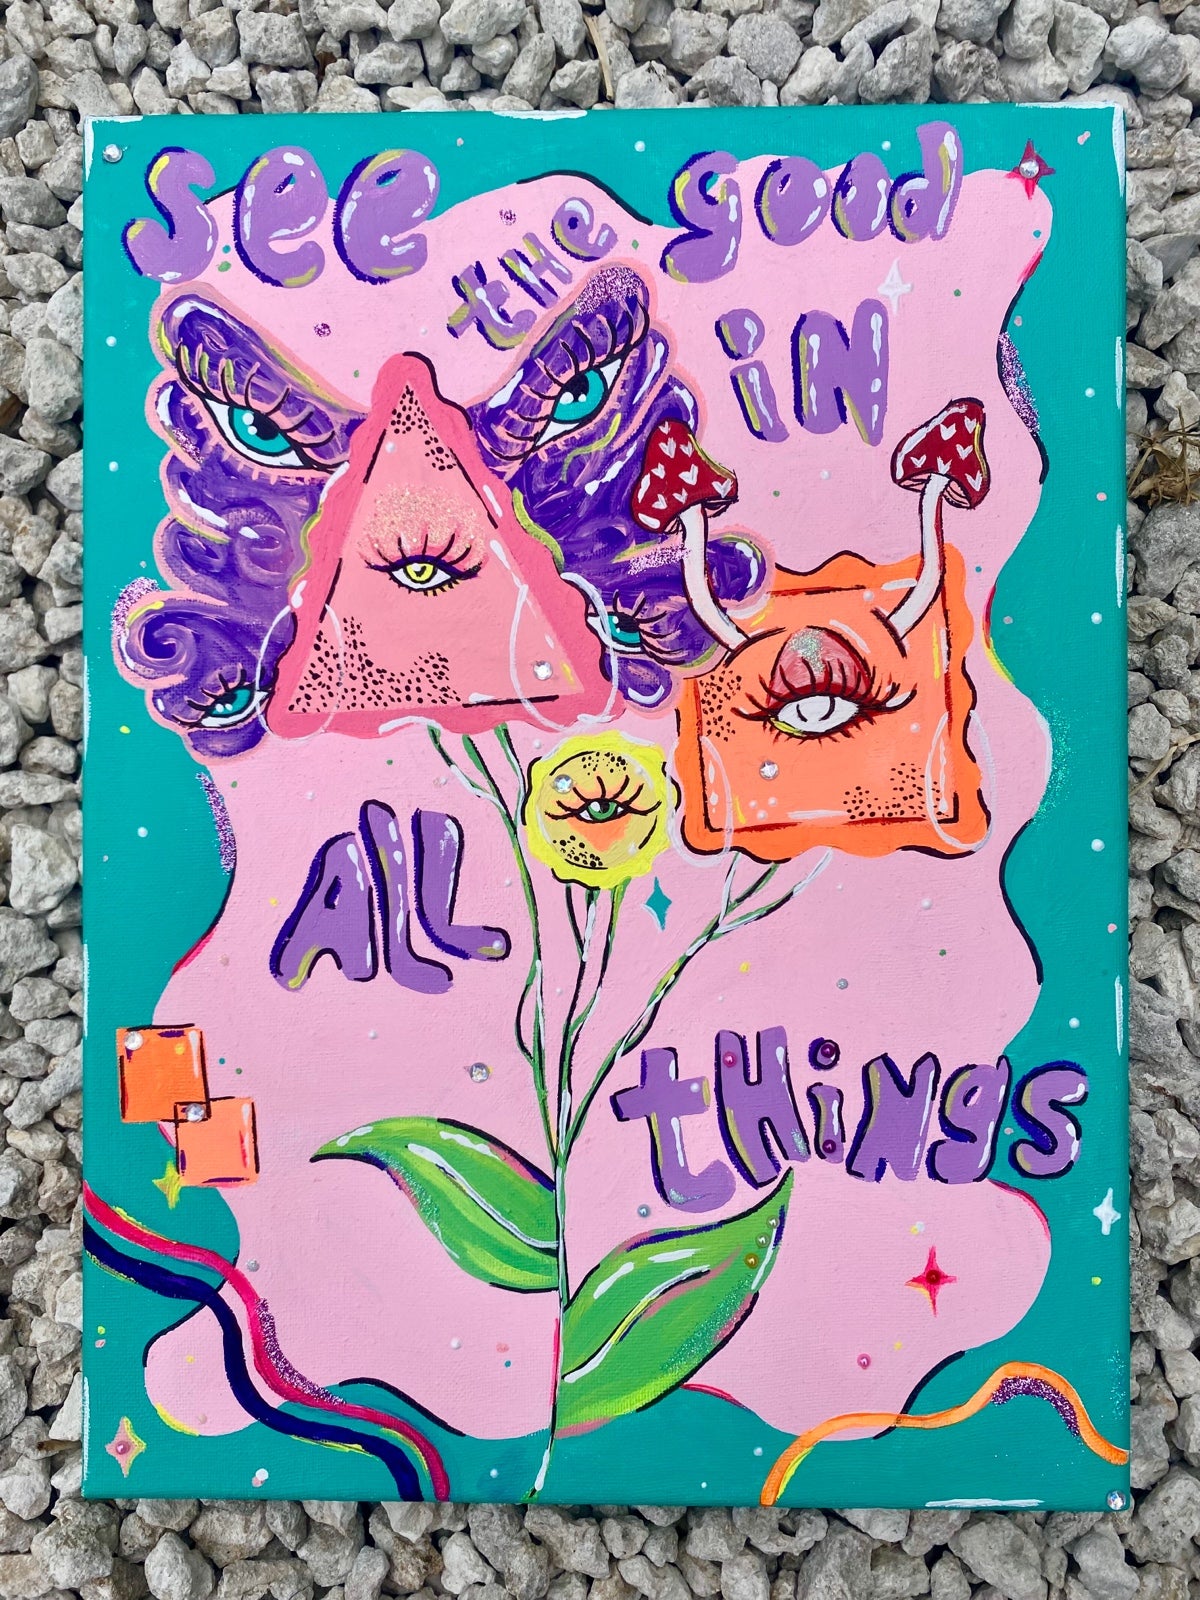 See the good
iN
All
tHiNgs